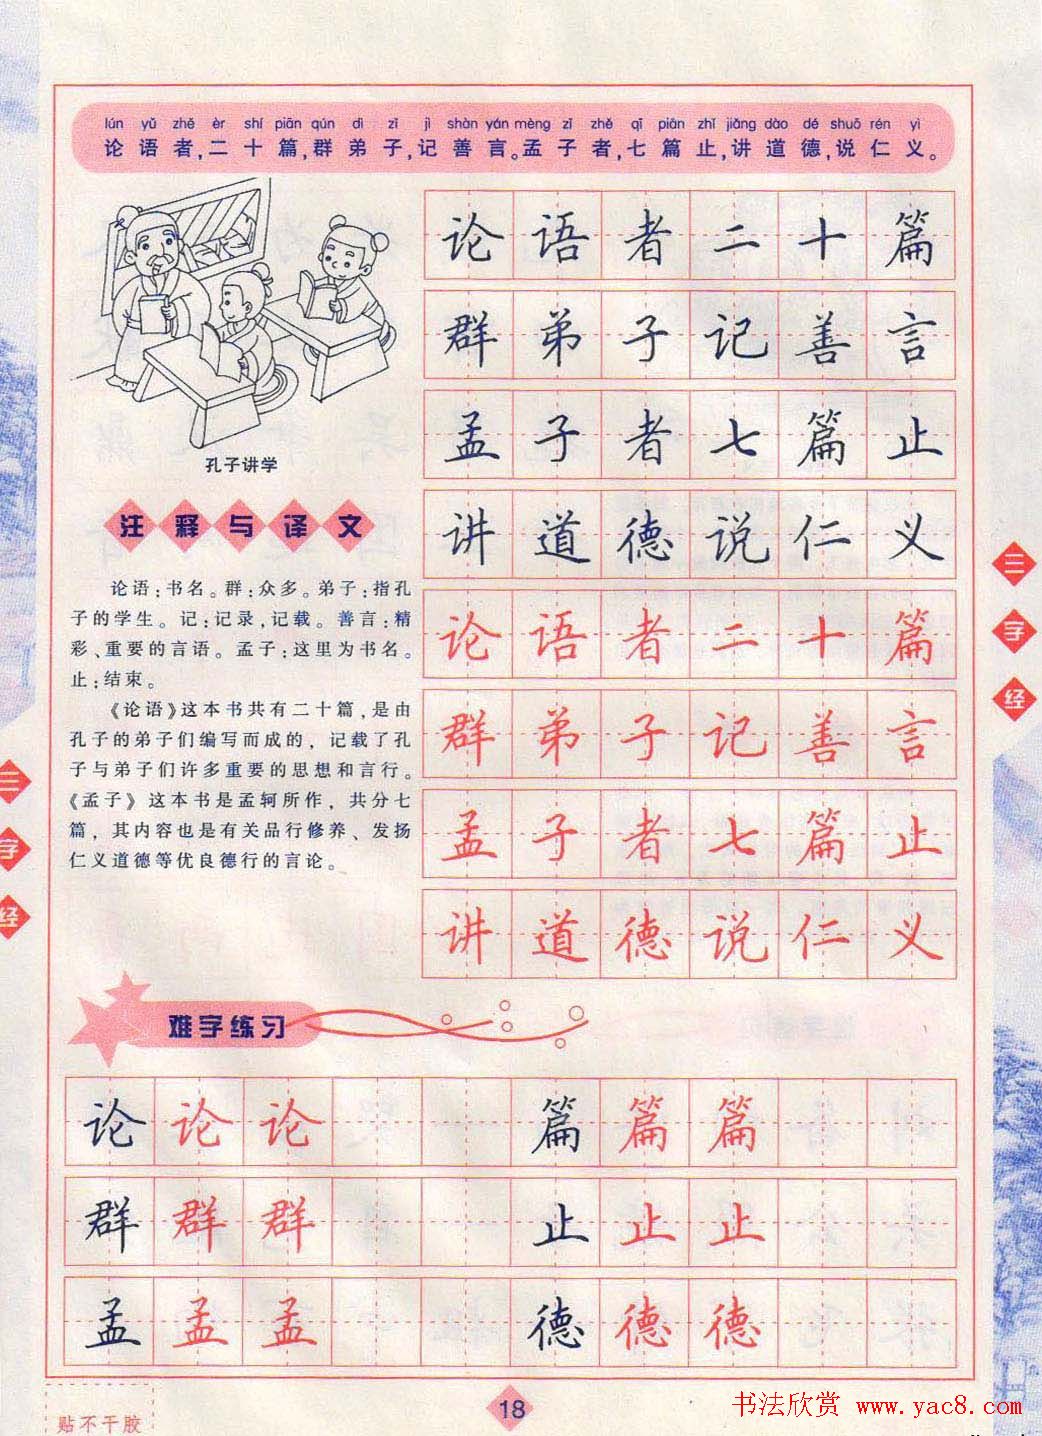 lún yǔ zhě èr shí piān qún dì zǐ jì shàn yán mèng zǐ zhě qī piān zhǐ jiǎng dào dé shuō rén yì
论语者,二十篇,群弟子,记善言。孟子者,七篇止,讲道德,说仁义。
孔子讲学
注释与译文
论语:书名。群:众多。弟子:指孔
子的学生。记:记录,记载。善言:精
彩、重要的言语。孟子:这里为书名。
止:结束。
《论语》这本书共有二十篇,是由
孔子的弟子们编写而成的,记载了孔
子与弟子们许多重要的思想和言行。
《孟子》这本书是孟轲所作,共分七
篇,其内容也是有关品行修养、发扬
仁义道德等优良德行的言论。
论语者二十篇
群弟子记善言
孟子者七篇止
讲道德说仁义
论语者二十篇
群弟子记善言
孟子者七篇止
讲道德说仁义
三字经
三字经
难字练习
论论论 篇篇篇
群群群 止止止
孟孟孟 德德德
贴不干胶
18
书法欣赏 www.yac8.com